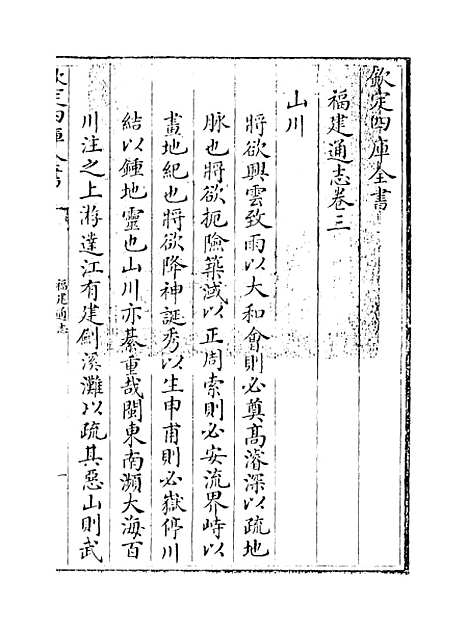 欽定四庫全書
福建通志卷三
山川
將欲興雲致雨以大和會則必奠髙濬深以疏地
脉也將欲扼險築滅以正周索則必安流界峙以
畫地紀也將欲降神誕秀以生申甫則必嶽停川
結以鍾地靈也山川亦綦重哉閩東南瀕大海百
川注之上游達江有建劍溪灘以疏其惡山則武
欽定四庫全書
福建通志
一